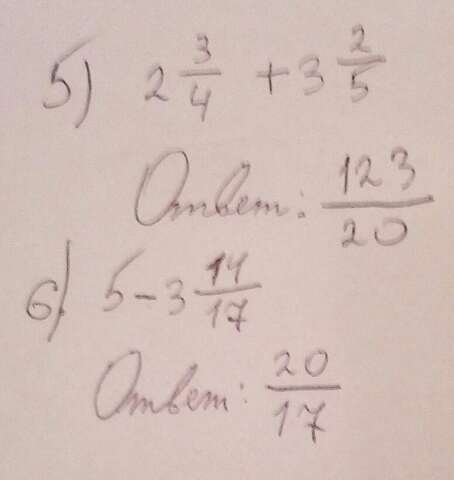 5) 2 3/4 + 3 2/5
Ответ: 123/20
6) 5 - 3 14/17
Ответ: 20/17